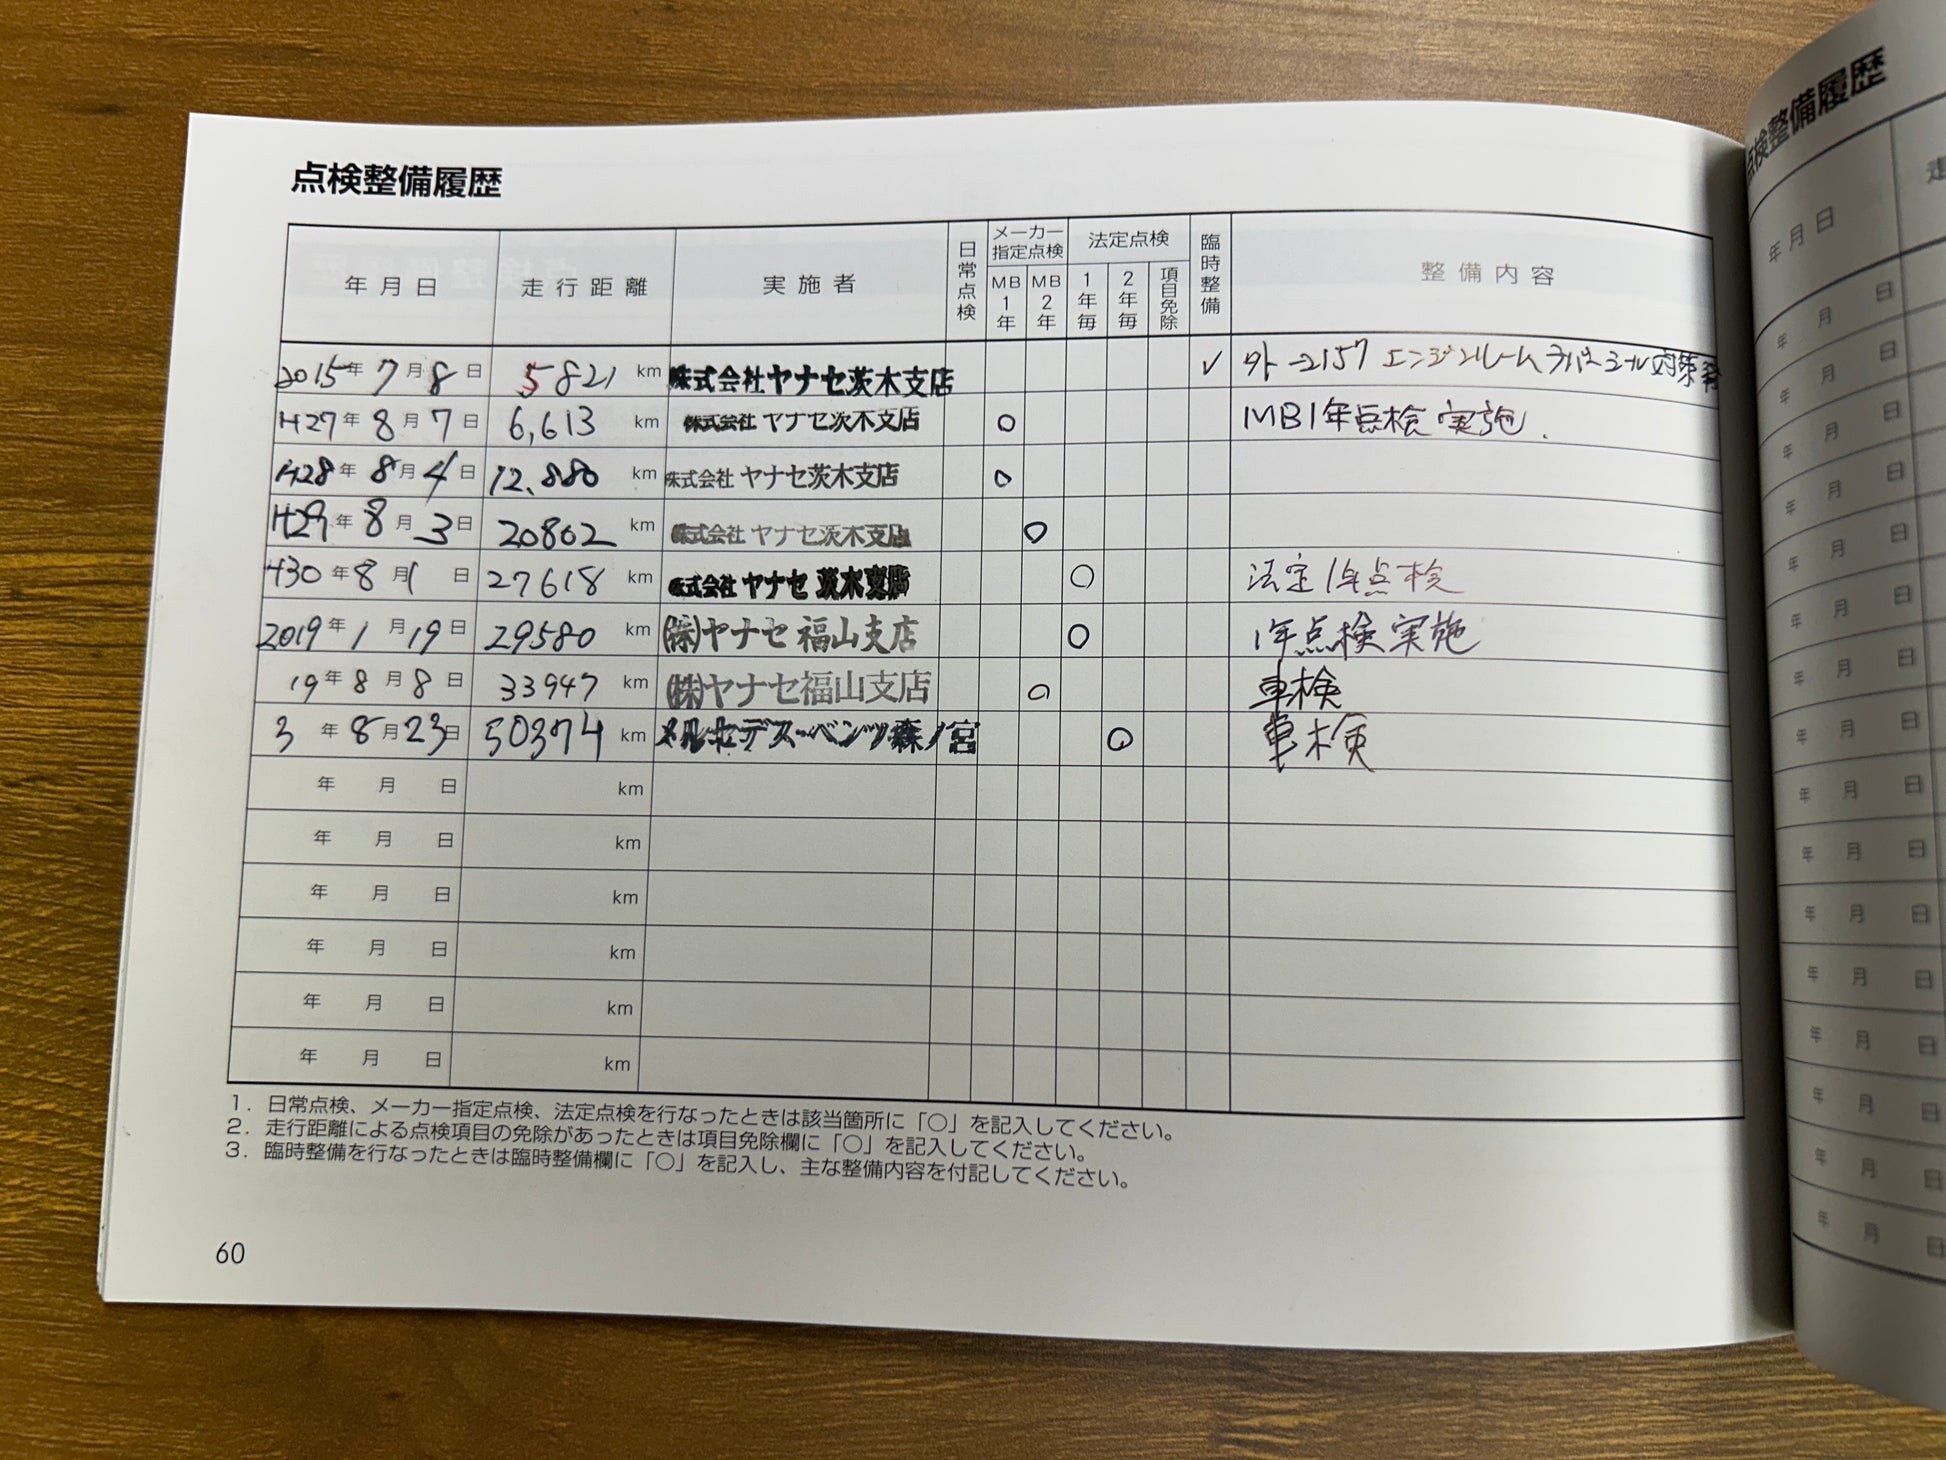 点検整備履歴
年月日 走行距離 実施者 日常点検 メーカー指定点検 MB1年 MB2年 法定点検 1年毎 2年毎 項目免除 臨時整備 整備内容
2015年7月8日 5821 km 株式会社ヤナセ茨木支店 ✓ エンジンルームラバーシール対策
H27年8月7日 6,613 km 株式会社ヤナセ茨木支店 ○ MB1年点検実施.
H28年8月4日 12.880 km 株式会社ヤナセ茨木支店 ○
H29年8月3日 20802 km 株式会社ヤナセ茨木支店 ○
H30年8月1日 27618 km 株式会社ヤナセ茨木支店 ○ 法定1年点検
2019年1月19日 29580 km (株)ヤナセ福山支店 ○ 1年点検実施
19年8月8日 33947 km (株)ヤナセ福山支店 ○ 車検
3年8月23日 50374 km メルセデス・ベンツ森ノ宮 ○ 車検
年 月 日 km
年 月 日 km
年 月 日 km
年 月 日 km
年 月 日 km
年 月 日 km
1. 日常点検、メーカー指定点検、法定点検を行なったときは該当箇所に「○」を記入してください。
2. 走行距離による点検項目の免除があったときは項目免除欄に「○」を記入してください。
3. 臨時整備を行なったときは臨時整備欄に「○」を記入し、主な整備内容を付記してください。
60
点検整備履歴
年月日 走
年 月 日
年 月 日
年 月 日
年 月 日
年 月 日
年 月 日
年 月 日
年 月 日
年 月 日
年 月 日
年 月 日
年 月 日
年 月 日
年 月 日
年 月 日